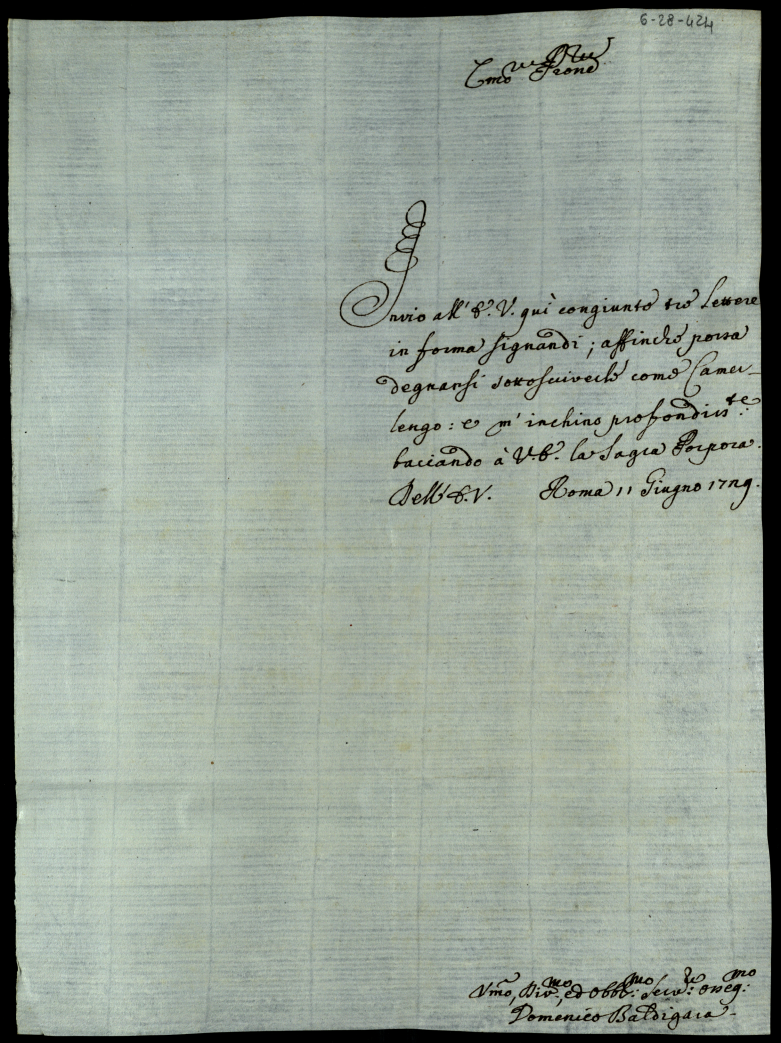 6-28-424
Em̃o ... Prone
Invio all' E. V. quì congiunte tre Lettere
in forma signandi; affinche possa
degnarsi sottoscriverle come Camer-
lengo: e m' inchino profondis.te:
baciando à V. E. la Sagra Porpora.
Dell' E. V. Roma 11 Giugno 1729.
Vm̃o, Div.mo, ed Obbl.mo: Serv.re: Osseq.mo:
Domenico Baldigara